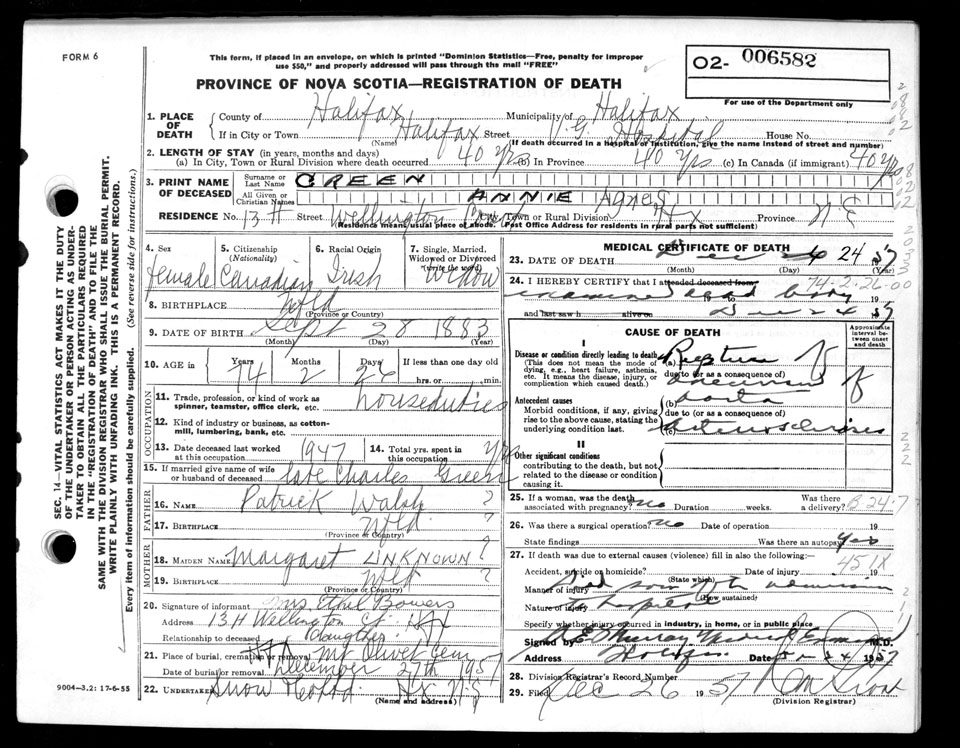 FORM 6
This form, if placed in an envelope, on which is printed "Dominion Statistics—Free, penalty for improper
use $50," and properly addressed will pass through the mail "FREE"
O2- 006582
For use of the Department only
PROVINCE OF NOVA SCOTIA—REGISTRATION OF DEATH
1. PLACE OF DEATH County of Halifax Municipality of Halifax
If in City or Town Halifax Street V.G. Hospital House No.
(Name) (If death occurred in a hospital or institution, give the name instead of street and number)
2. LENGTH OF STAY (in years, months and days)
(a) In City, Town or Rural Division where death occurred 40 yrs (b) In Province 40 yrs (c) In Canada (if immigrant) 40 yrs
3. PRINT NAME OF DECEASED Surname or Last Name GREEN
All Given or Christian Names ANNIE Agnes
RESIDENCE No. 13 H Street Wellington City, Town or Rural Division Hx Province
Residence means usual place of abode. (Post Office Address for residents in rural parts not sufficient)
4. Sex female
5. Citizenship (Nationality) Canadian
6. Racial Origin Irish
7. Single, Married, Widowed or Divorced (write the word) Widow
8. BIRTHPLACE Nfld
(Province or Country)
9. DATE OF BIRTH Sept 28 1883
(Month) (Day) (Year)
10. AGE in Years 74 Months 2 Days 26 If less than one day old
hrs. or min.
OCCUPATION
11. Trade, profession, or kind of work as
spinner, teamster, office clerk, etc. houseduties
12. Kind of industry or business, as cotton-
mill, lumbering, bank, etc.
13. Date deceased last worked
at this occupation 1947
14. Total yrs. spent in
this occupation yrs
15. If married give name of wife
or husband of deceased late Charles Green
FATHER
16. NAME Patrick Walsh ?
17. BIRTHPLACE Nfld. ?
(Province or Country)
MOTHER
18. MAIDEN NAME Margaret UNKNOWN ?
19. BIRTHPLACE Nfld ?
(Province or Country)
20. Signature of informant Mrs Ethel Bowers
Address 13 H Wellington St. Hx
Relationship to deceased daughter
21. Place of burial, cremation or removal Mt Olivet Cem
Date of burial or removal December 27th 1957
22. Undertaker Snow Hx N S
(Name and address)
9004—3.2: 17-6-55
MEDICAL CERTIFICATE OF DEATH
23. DATE OF DEATH Dec 24 1957
(Month) (Day) (Year)
74-2-26-00
24. I HEREBY CERTIFY that I attended deceased from
examined dead body 19
and last saw h alive on Dec 24 1957
CAUSE OF DEATH
Approximate interval between onset and death
I
Disease or condition directly leading to death
(This does not mean the mode of
dying, e.g., heart failure, asthenia,
etc. It means the disease, injury, or
complication which caused death.)
(a) Rupture of
due to (or as a consequence of)
aneurism of
Antecedent causes
Morbid conditions, if any, giving
rise to the above cause, stating the
underlying condition last.
(b) aorta
due to (or as a consequence of)
(c) arteriosclerosis
II
Other significant conditions
contributing to the death, but not
related to the disease or condition
causing it.
25. If a woman, was the death
associated with pregnancy? no Duration weeks. Was there a delivery?
26. Was there a surgical operation? no Date of operation 19
State findings Was there an autopsy? yes
27. If death was due to external causes (violence) fill in also the following:—
451X
Accident, suicide or homicide? Date of injury 19
(State which)
Manner of injury Died soon after admission
(How sustained)
Nature of injury to hospital
Specify whether injury occurred in industry, in home, or in public place
Signed by Murray Medical Examiner M.D.
Address Halifax Date Dec 24 1957
28. Division Registrar's Record Number
29. Filed Dec 26 1957
(Division Registrar)
SEC. 14—VITAL STATISTICS ACT MAKES IT THE DUTY
OF THE UNDERTAKER OR PERSON ACTING AS UNDER-
TAKER TO OBTAIN ALL THE PARTICULARS REQUIRED
IN THE "REGISTRATION OF DEATH" AND TO FILE THE
SAME WITH THE DIVISION REGISTRAR WHO SHALL ISSUE THE BURIAL PERMIT.
WRITE PLAINLY WITH UNFADING INK. THIS IS A PERMANENT RECORD.
Every item of information should be carefully supplied. (See reverse side for instructions.)